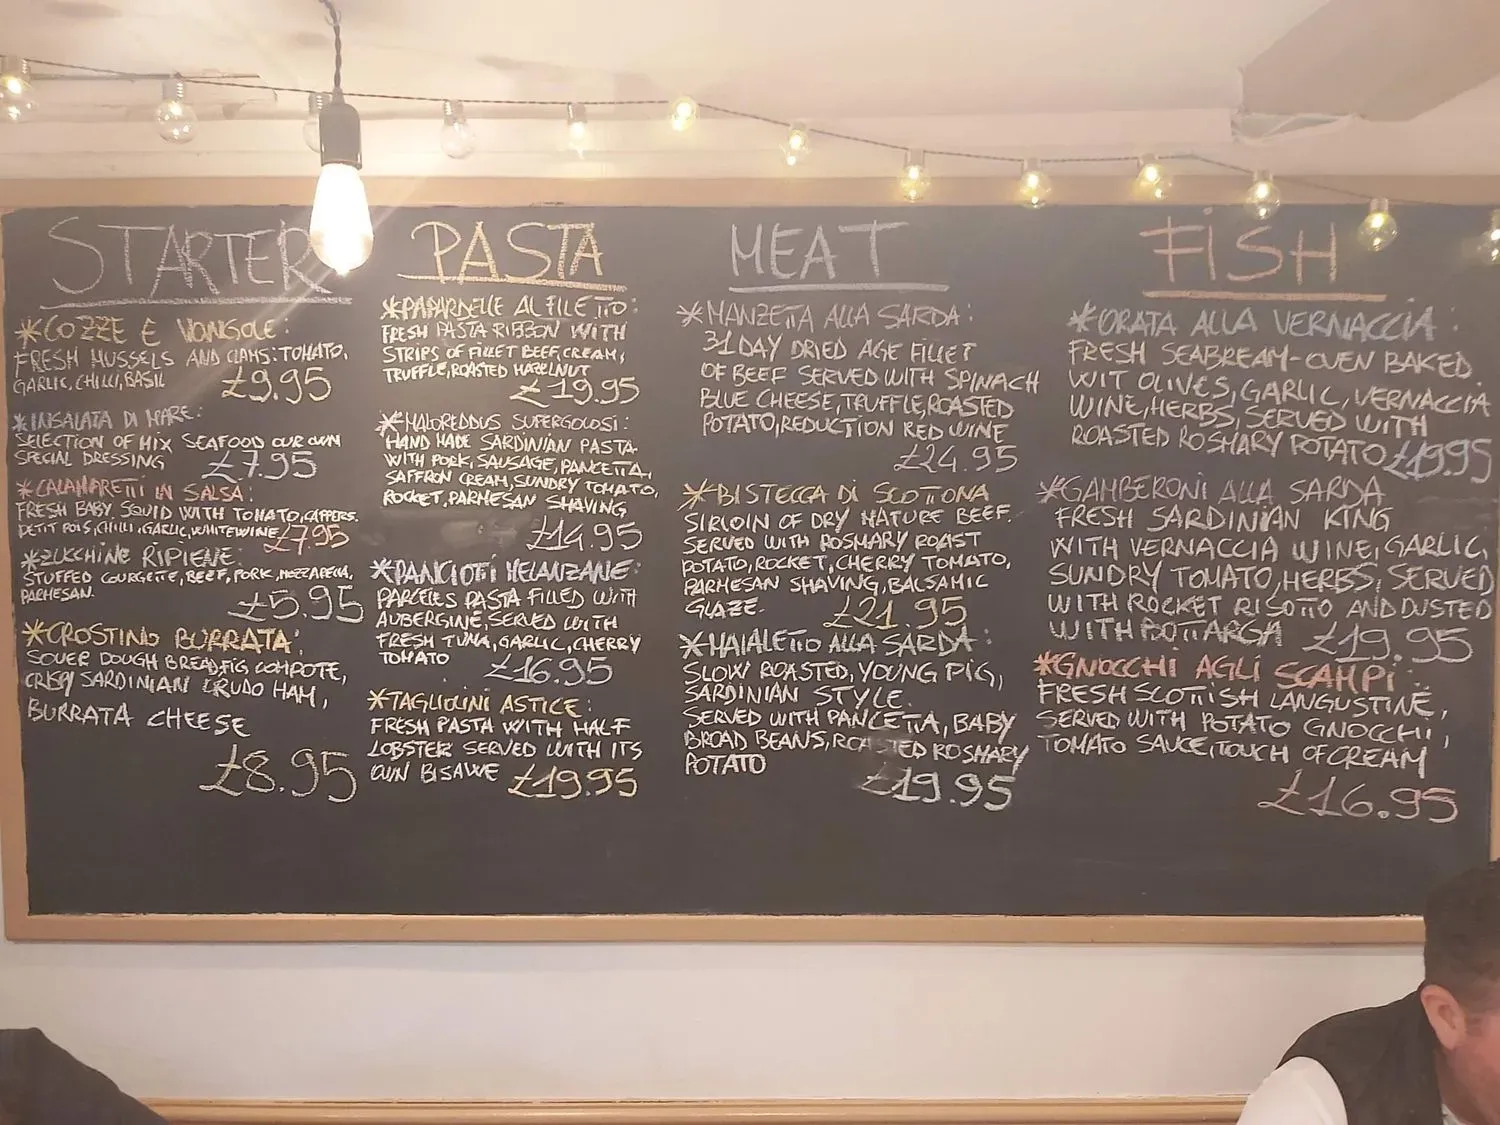 STARTER
*COZZE E VONGOLE:
FRESH MUSSELS AND CLAMS: TOMATO,
GARLIC, CHILLI, BASIL £9.95
*INSALATA DI MARE:
SELECTION OF MIX SEAFOOD OUR OWN
SPECIAL DRESSING £7.95
*CALAMARETTI IN SALSA:
FRESH BABY SQUID WITH TOMATO, CAPPERS.
PETIT POIS, CHILLI, GARLIC, WHITE WINE £7.95
*ZUCCHINE RIPIENE:
STUFFED COURGETTE, BEEF, PORK, MOZZARELLA,
PARMESAN. £5.95
*CROSTINO BURRATA:
SOUER DOUGH BREAD, FIG COMPOTE,
CRISPY SARDINIAN CRUDO HAM,
BURRATA CHEESE
£8.95
PASTA
*PAPARDELLE AL FILETTO:
FRESH PASTA RIBBON WITH
STRIPS OF FILLET BEEF, CREAM,
TRUFFLE, ROASTED HAZELNUT
£19.95
*MALOREDDUS SUPERGOLOSI:
HAND MADE SARDINIAN PASTA
WITH PORK, SAUSAGE, PANCETTA,
SAFFRON CREAM, SUNDRY TOMATO,
ROCKET, PARMESAN SHAVING
£14.95
*PANCIOTTI MELANZANE:
PARCELES PASTA FILLED WITH
AUBERGINE, SERVED WITH
FRESH TUNA, GARLIC, CHERRY
TOMATO £16.95
*TAGLIOLINI ASTICE:
FRESH PASTA WITH HALF
LOBSTER SERVED WITH ITS
OWN £19.95
MEAT
*MANZETTA ALLA SARDA:
31 DAY DRIED AGE FILLET
OF BEEF SERVED WITH SPINACH
BLUE CHEESE, TRUFFLE, ROASTED
POTATO, REDUCTION RED WINE
£24.95
*BISTECCA DI SCOTTONA
SIRLOIN OF DRY MATURE BEEF.
SERVED WITH ROSMARY ROAST
POTATO, ROCKET, CHERRY TOMATO,
PARMESAN SHAVING, BALSAMIC
GLAZE. £21.95
*MAIALETTO ALLA SARDA:
SLOW ROASTED, YOUNG PIG,
SARDINIAN STYLE.
SERVED WITH PANCETTA, BABY
BROAD BEANS, ROASTED ROSMARY
POTATO £19.95
FISH
*ORATA ALLA VERNACCIA:
FRESH SEABREAM-OVEN BAKED
WIT OLIVES, GARLIC, VERNACCIA
WINE, HERBS, SERVED WITH
ROASTED ROSMARY POTATO £19.95
*GAMBERONI ALLA SARDA
FRESH SARDINIAN KING
WITH VERNACCIA WINE, GARLIC,
SUNDRY TOMATO, HERBS, SERVED
WITH ROCKET RISOTTO AND DUSTED
WITH BOTTARGA £19.95
*GNOCCHI AGLI SCAMPI:
FRESH SCOTTISH LANGUSTINE,
SERVED WITH POTATO GNOCCHI,
TOMATO SAUCE, TOUCH OF CREAM
£16.95